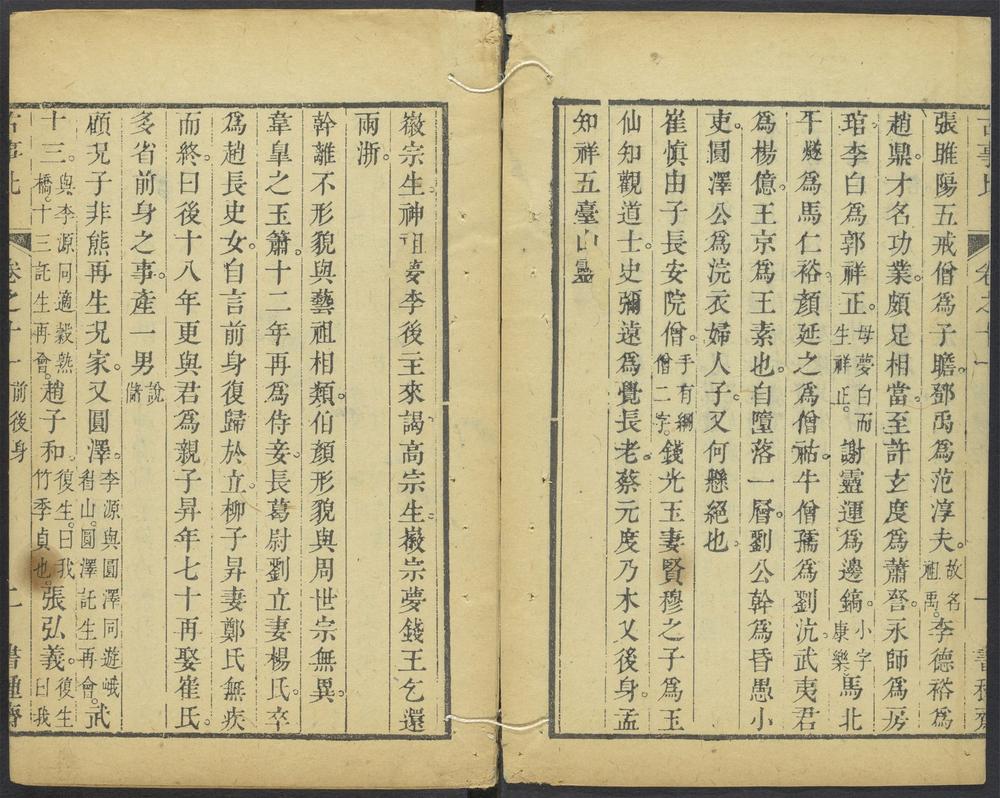 張睢陽五戒僧爲子瞻鄧禹爲范淳夫故名祖禹李德裕爲
趙鼎才名功業頗足相當至許玄度爲蕭詧永師爲房
琯李白爲郭祥正母夢白而生祥正謝靈運爲邊鎬小字康樂馬北
平燧爲馬仁裕顏延之爲僧祐牛僧孺爲劉沆武夷君
爲楊億王京爲王素也自墮落一層劉公幹爲昏愚小
吏圓澤公爲浣衣婦人子又何懸絕也
崔慎由子長安院僧手有綱僧二字錢光玉妻賢穆之子爲玉
仙知觀道士史彌遠爲覺長老蔡元度乃木乂後身孟
知祥五臺山靈
徽宗生神祖夢李後主來謁高宗生徽宗夢錢王乞還
兩浙
幹離不形貌與藝祖相類伯顏形貌與周世宗無異
韋皐之玉簫十二年再爲侍妾長葛尉劉立妻楊氏卒
爲趙長史女自言前身復歸於立柳子昇妻鄭氏無疾
而終曰後十八年更與君爲親子昇年七十再娶崔氏
多省前身之事產一男說儲
顧況子非熊再生況家又圓澤李源與圓澤同遊峨眉山圓澤託生再會武
十三與李源同適穀熟橋十三託生再會趙子和復生曰我竹季貞也張弘義復生曰我
卷之十一
前後身
二